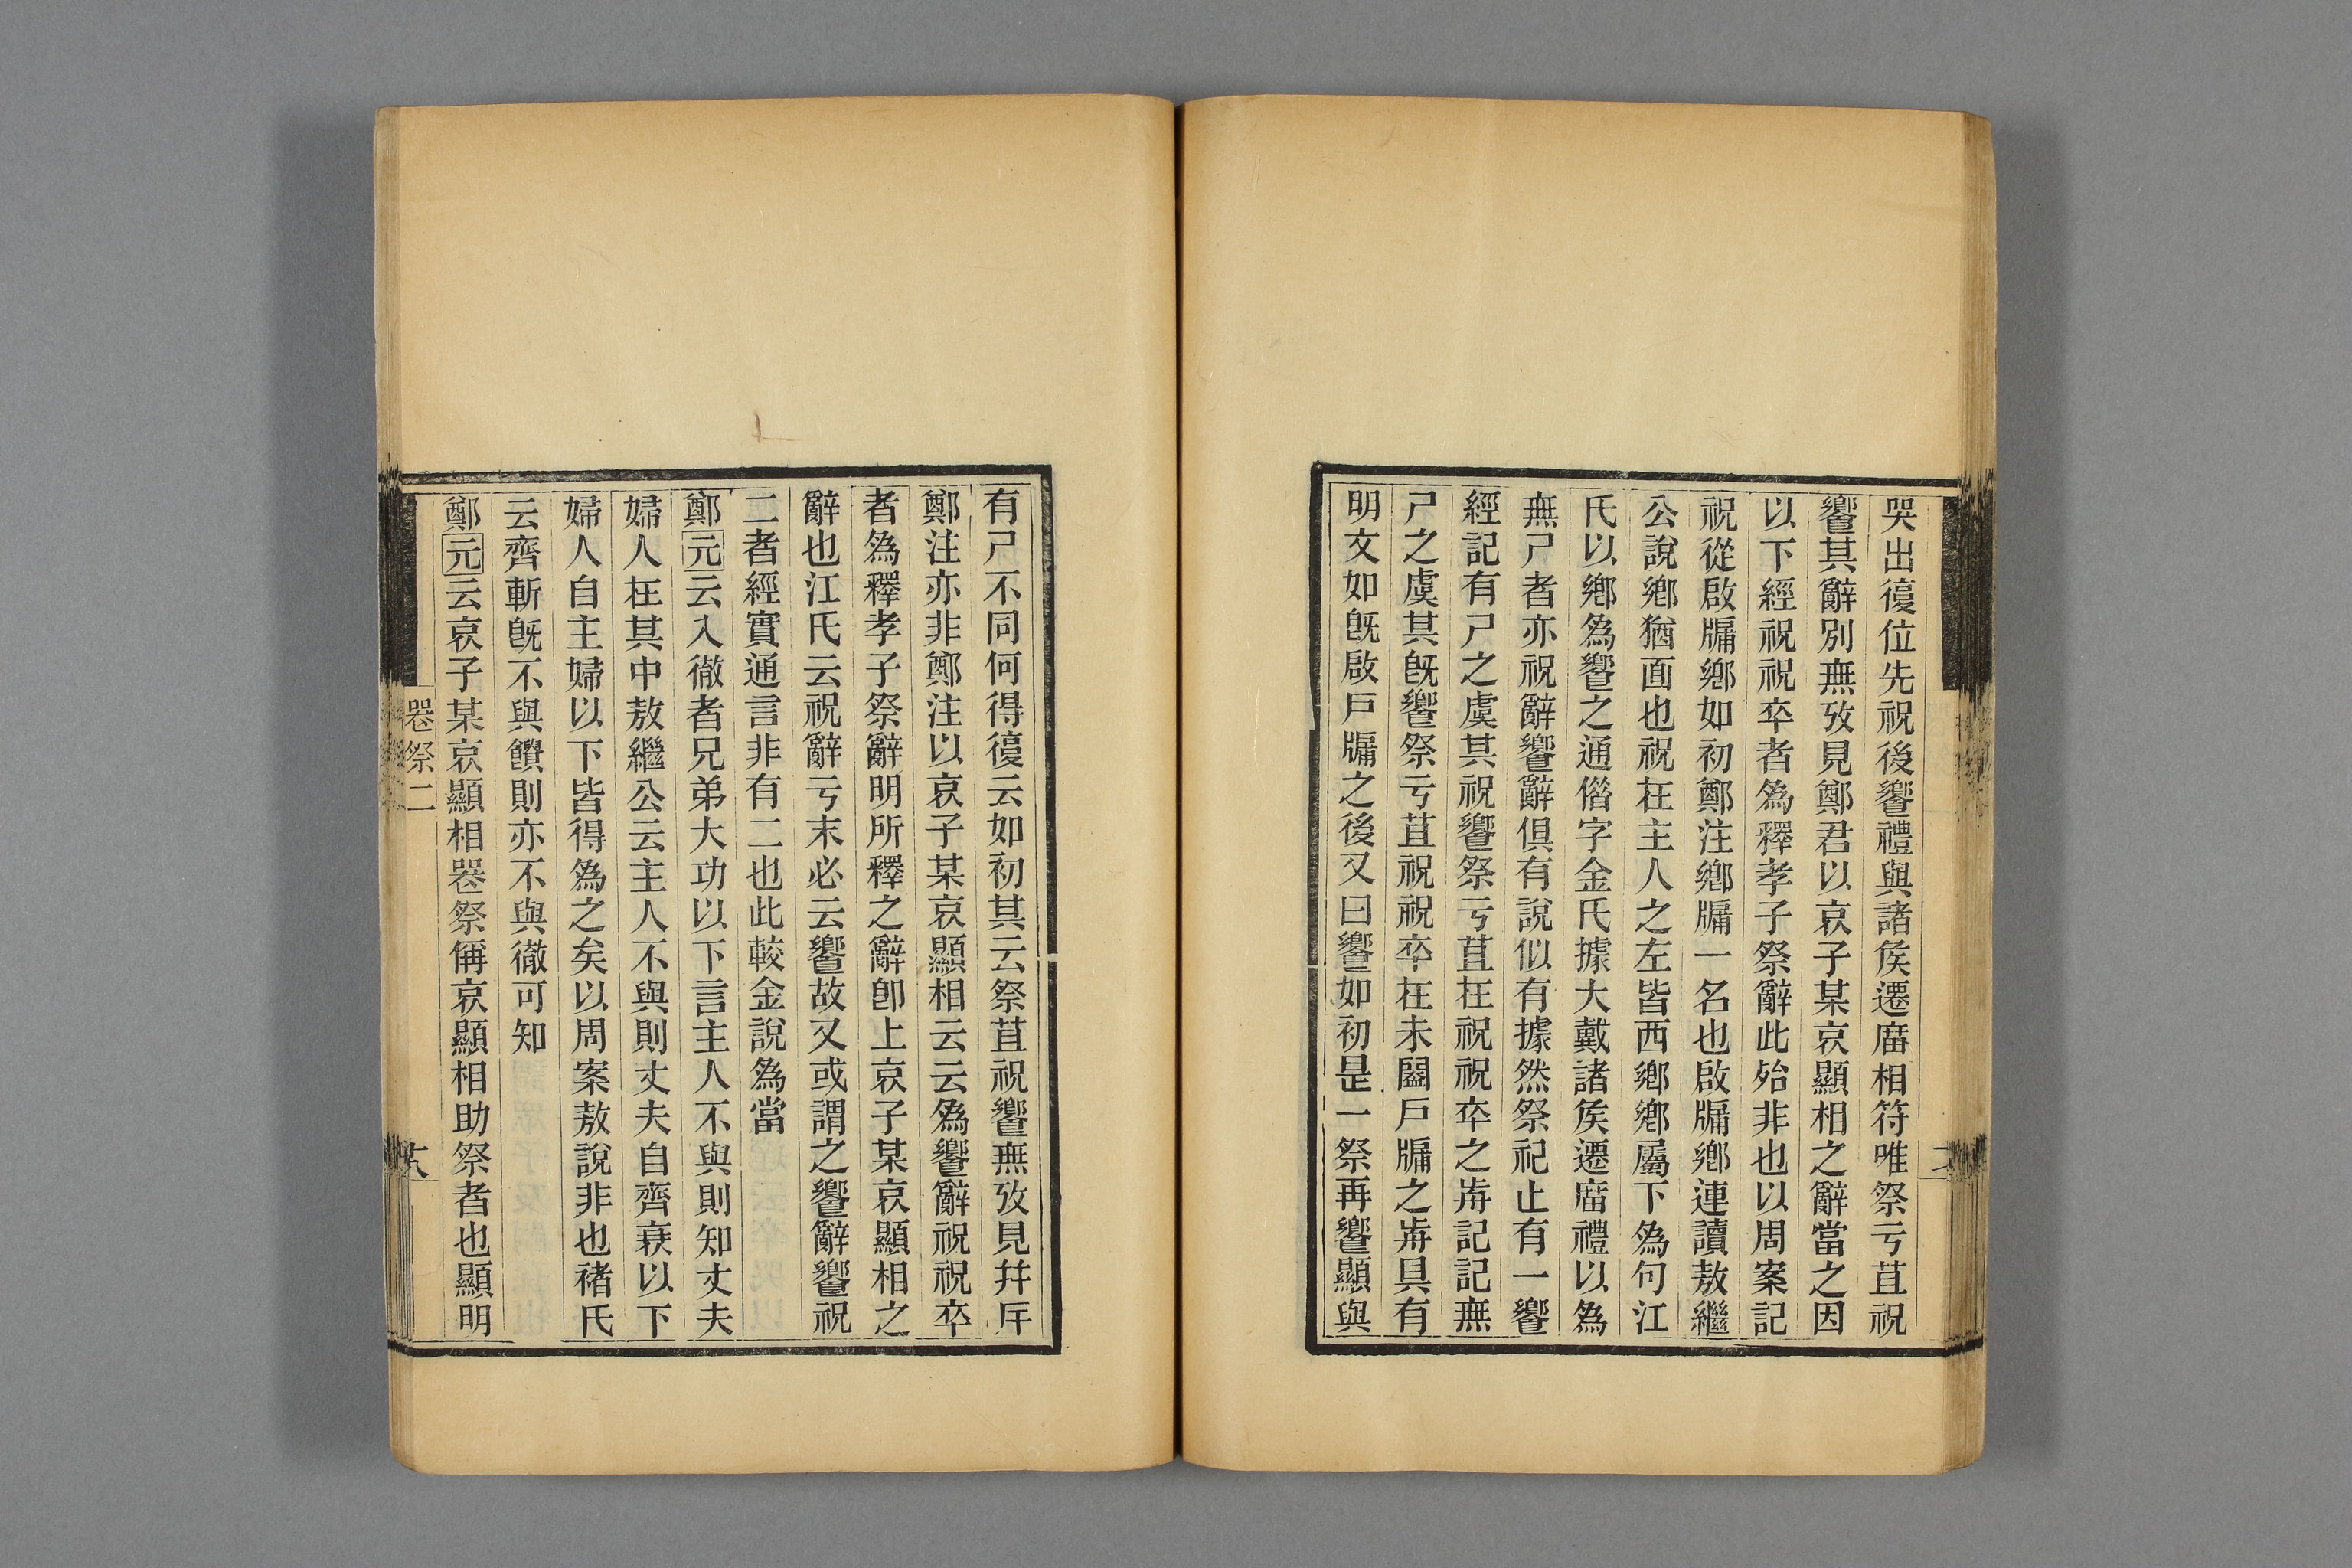 哭出復位先祝後饗禮與諸矦遷廟相符唯祭亏苴祝
饗其辭別無攷見鄭君以哀子某哀顯相之辭當之因
以下經祝祝卒者為釋孝子祭辭此殆非也以周案記
祝從啟牖鄉如初鄭注鄉牖一名也啟牖鄉連讀敖繼
公說鄉猶面也祝在主人之左皆西鄉鄉屬下為句江
氏以鄉為饗之通借字金氏據大戴諸矦遷廟禮以為
無尸者亦祝辭饗辭俱有說似有據然祭祀止有一饗
經記有尸之虞其祝饗祭亏苴在祝祝卒之歬記記無
尸之虞其旣饗祭亏苴祝祝卒在未闔戶牖之歬具有
明文如旣啟戶牖之後又曰饗如初是一祭再饗顯與
有尸不同何得復云如初其云祭苴祝饗無攷見幷斥
鄭注亦非鄭注以哀子某哀顯相云云為饗辭祝祝卒
者為釋孝子祭辭明所釋之辭卽上哀子某哀顯相之
辭也江氏云祝辭亏末必云饗故又或謂之饗辭饗祝
二者經實通言非有二也此較金說為當
鄭元云入徹者兄弟大功以下言主人不與則知丈夫
婦人在其中敖繼公云主人不與則丈夫自齊衰以下
婦人自主婦以下皆得為之矣以周案敖說非也褚氏
云齊斬旣不與饋則亦不與徹可知
鄭元云哀子某哀顯相喪祭偁哀顯相助祭者也顯明
喪祭二
六